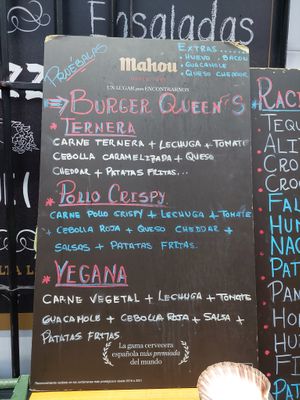 Ensaladas
PRUEBALAS
Mahou
UN LUGAR para ENCONTRARNOS
EXTRAS......
· HUEVO · BACON
· GUACAMOLE
· QUESO CHEDDAR
BURGER QUEEN'S
* TERNERA
CARNE TERNERA + LECHUGA + TOMATE
CEBOLLA CARAMELIZADA + QUESO
CHEDDAR + PATATAS FRITAS...
* POLLO CRISPY
CARNE POLLO CRISPY + LECHUGA + TOMATE
+ CEBOLLA ROJA + QUESO CHEDDAR +
SALSAS + PATATAS FRITAS.
* VEGANA
CARNE VEGETAL + LECHUGA + TOMATE
GUACAMOLE + CEBOLLA ROJA + SALSA +
PATATAS FRITAS
La gama cervecera
española más premiada
del mundo
RAC
TEQU
ALI
CRO
CRO
FAL
HUM
NAC
PAT
PAN